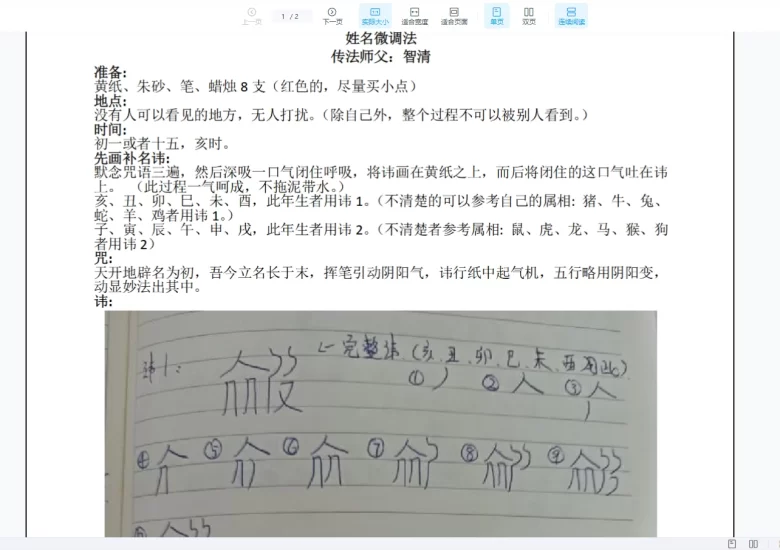 上一页
1 / 2
下一页
实际大小
适合宽度
适合页面
单页
双页
连续阅读
姓名微调法
传法师父：智清
准备:
黄纸、朱砂、笔、蜡烛 8 支（红色的，尽量买小点）
地点:
没有人可以看见的地方，无人打扰。（除自己外，整个过程不可以被别人看到。）
时间:
初一或者十五，亥时。
先画补名讳:
默念咒语三遍，然后深吸一口气闭住呼吸，将讳画在黄纸之上，而后将闭住的这口气吐在讳
上。 （此过程一气呵成，不拖泥带水。）
亥、丑、卯、巳、未、酉，此年生者用讳 1。（不清楚的可以参考自己的属相: 猪、牛、兔、
蛇、羊、鸡者用讳 1。）
子、寅、辰、午、申、戌，此年生者用讳 2。（不清楚者参考属相: 鼠、虎、龙、马、猴、狗
者用讳 2）
咒:
天开地辟名为初，吾今立名长于末，挥笔引动阴阳气，讳行纸中起气机，五行略用阴阳变，
动显妙法出其中。
讳:
讳1: ←完整讳（亥、丑、卯、巳、未、酉用此）
① ② ③
④ ⑤ ⑥ ⑦ ⑧ ⑨